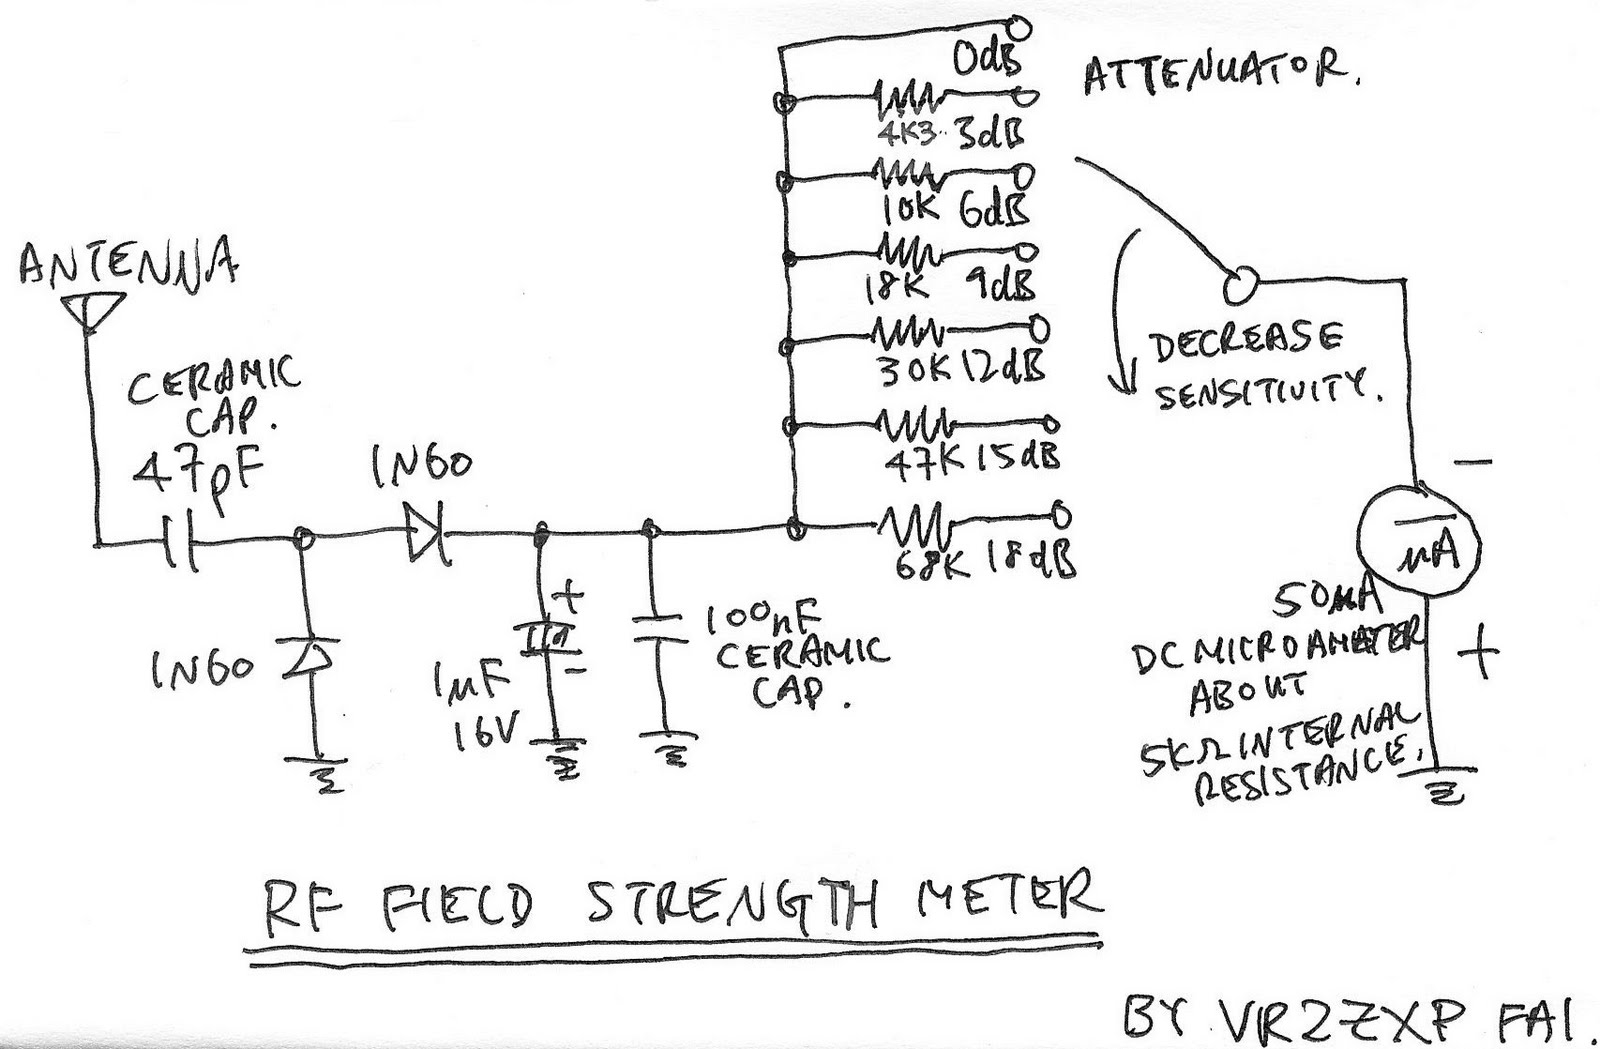 0dB
ATTENUATOR.
4K3 3dB
10K 6dB
18K 9dB
30K 12dB
47K 15dB
68K 18dB
ANTENNA
CERAMIC
CAP.
47pF
1N60
1N60
+
1µF
16V
-
100nF
CERAMIC
CAP.
DECREASE
SENSITIVITY.
-
µA
50µA
DC MICROAMETER
ABOUT
5KΩ INTERNAL
RESISTANCE.
+
RF FIELD STRENGTH METER
BY VR2ZXP FAI.